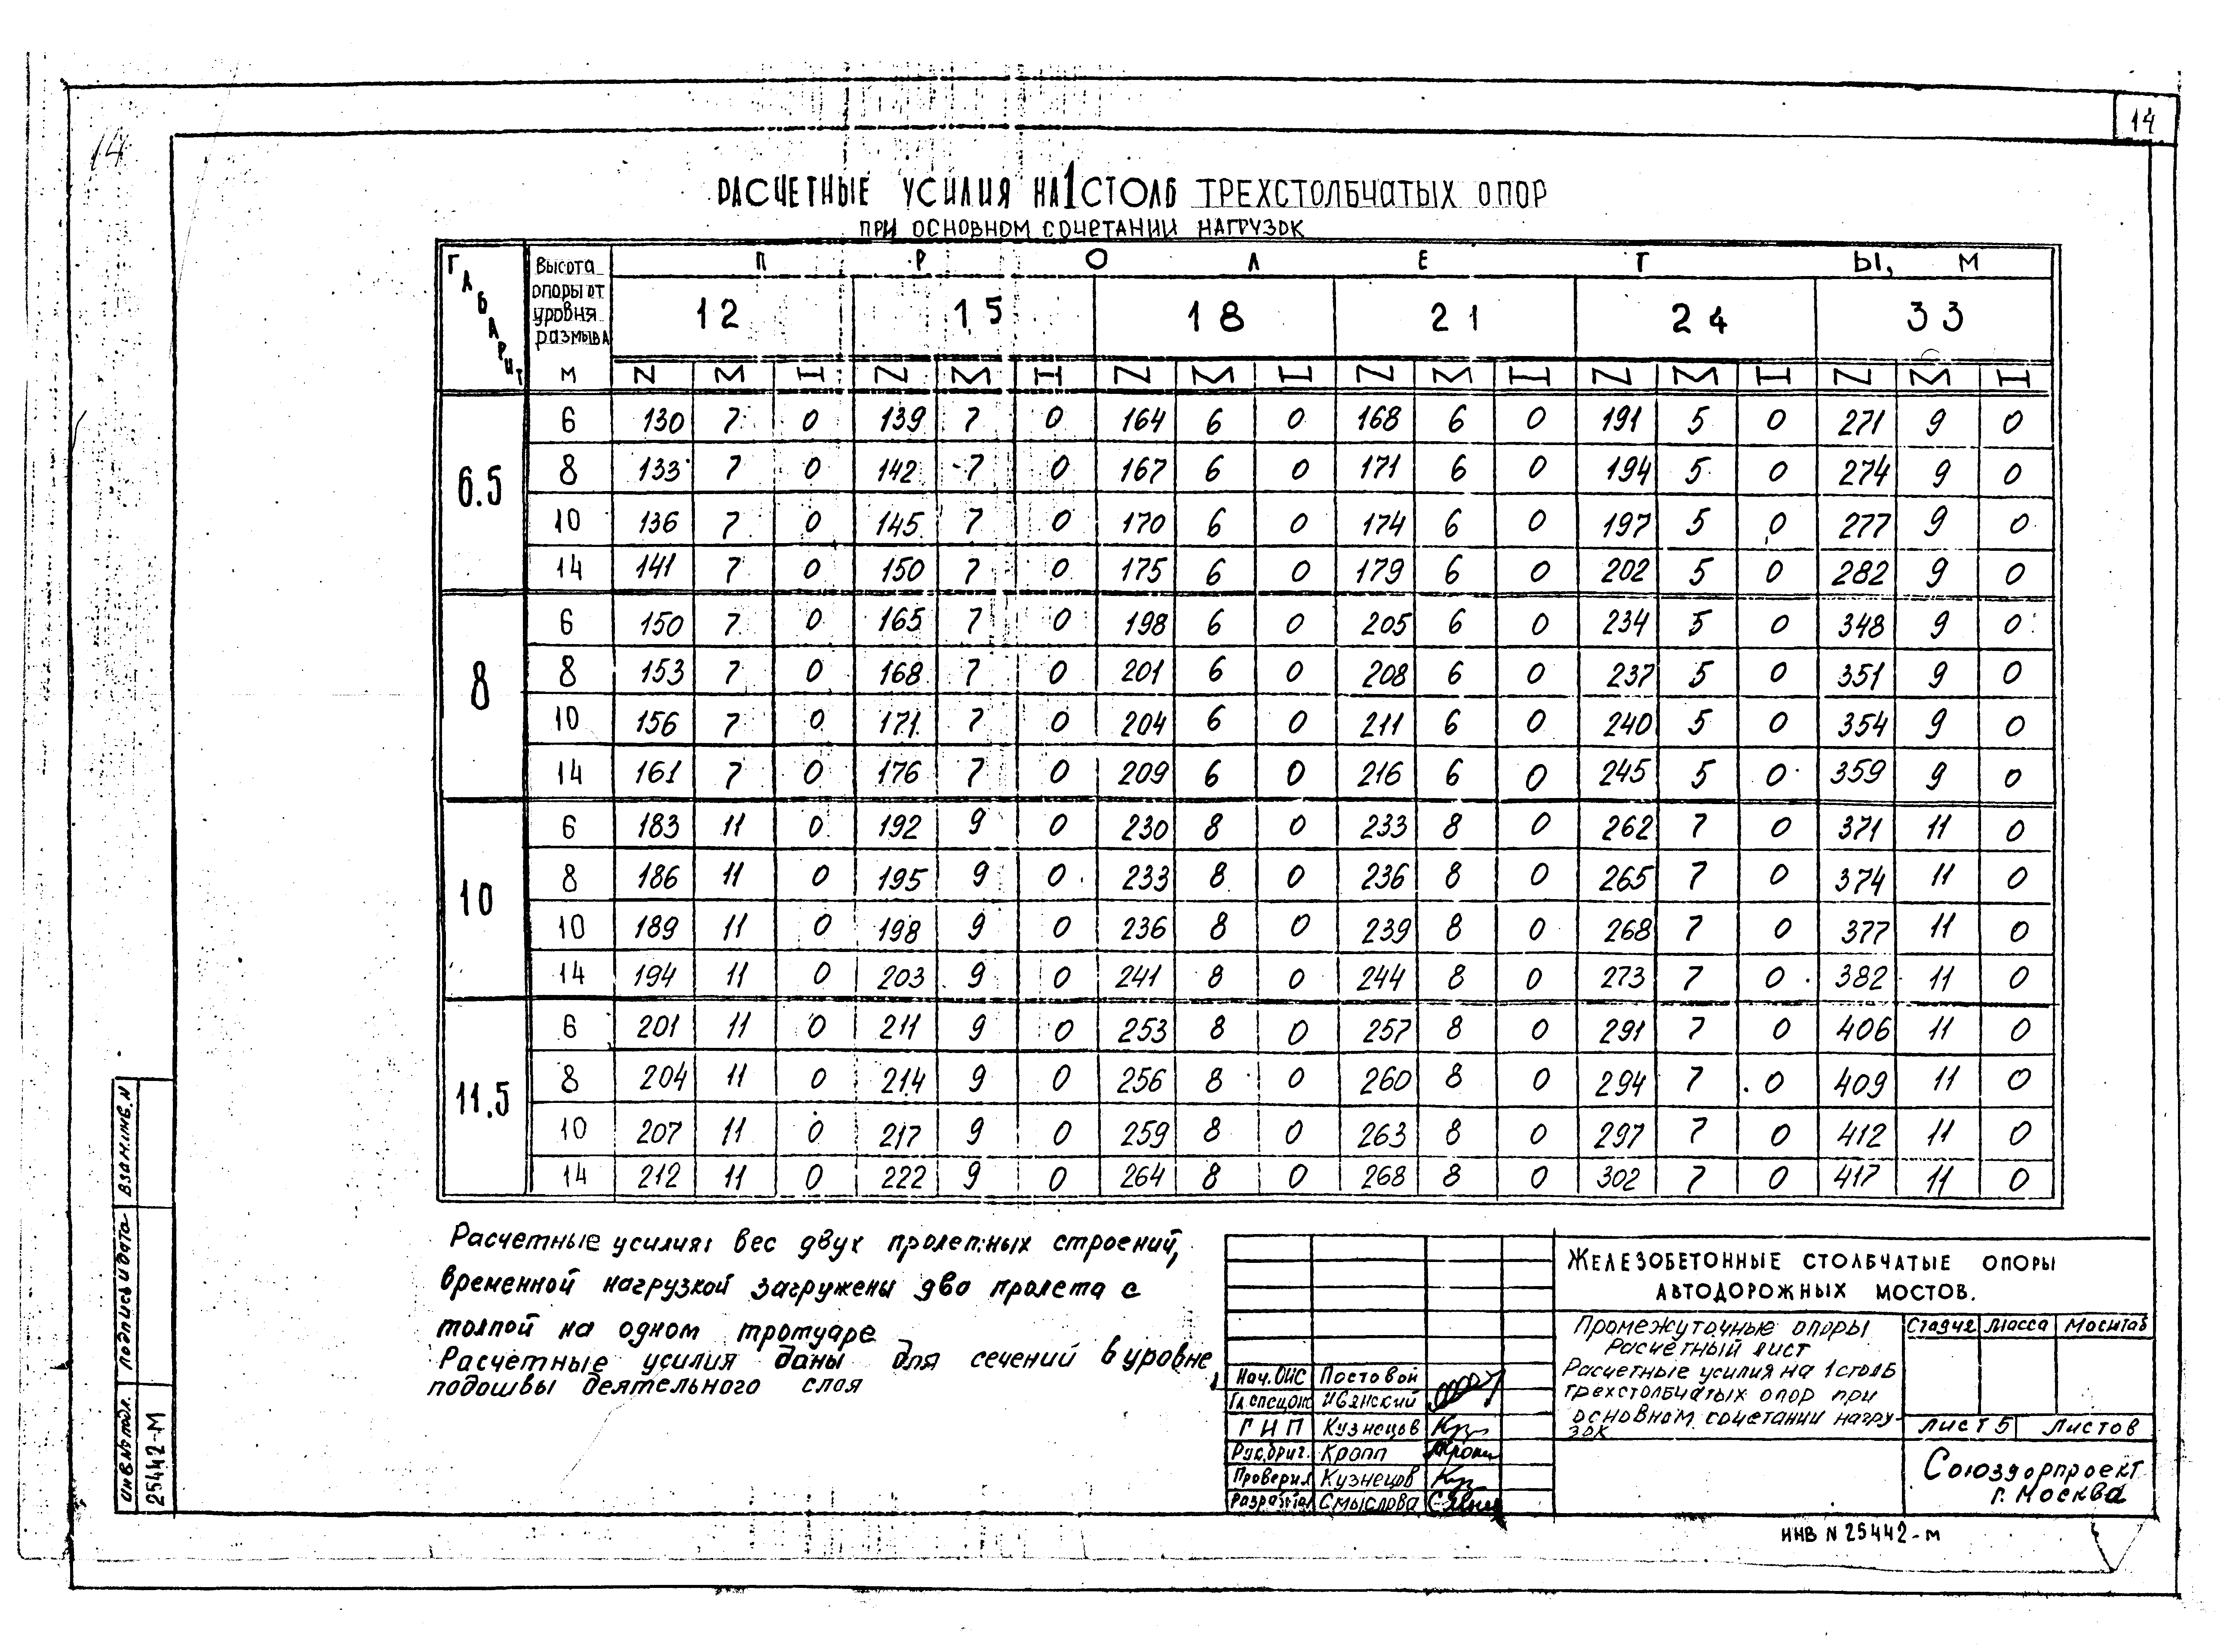 14
14
РАСЧЕТНЫЕ УСИЛИЯ НА 1 СТОЛБ ТРЕХСТОЛБЧАТЫХ ОПОР
ПРИ ОСНОВНОМ СОЧЕТАНИИ НАГРУЗОК
ГАБАРИТ Высота опоры от уровня размыва М ПРОЛЕТЫ, М
12 15 18 21 24 33
N M H N M H N M H N M H N M H N M H
6.5
6 130 7 0 139 7 0 164 6 0 168 6 0 191 5 0 271 9 0
8 133 7 0 142 7 0 167 6 0 171 6 0 194 5 0 274 9 0
10 136 7 0 145 7 0 170 6 0 174 6 0 197 5 0 277 9 0
14 141 7 0 150 7 0 175 6 0 179 6 0 202 5 0 282 9 0
8
6 150 7 0 165 7 0 198 6 0 205 6 0 234 5 0 348 9 0
8 153 7 0 168 7 0 201 6 0 208 6 0 237 5 0 351 9 0
10 156 7 0 171 7 0 204 6 0 211 6 0 240 5 0 354 9 0
14 161 7 0 176 7 0 209 6 0 216 6 0 245 5 0 359 9 0
10
6 183 11 0 192 9 0 230 8 0 233 8 0 262 7 0 371 11 0
8 186 11 0 195 9 0 233 8 0 236 8 0 265 7 0 374 11 0
10 189 11 0 198 9 0 236 8 0 239 8 0 268 7 0 377 11 0
14 194 11 0 203 9 0 241 8 0 244 8 0 273 7 0 382 11 0
11.5
6 201 11 0 211 9 0 253 8 0 257 8 0 291 7 0 406 11 0
8 204 11 0 214 9 0 256 8 0 260 8 0 294 7 0 409 11 0
10 207 11 0 217 9 0 259 8 0 263 8 0 297 7 0 412 11 0
14 212 11 0 222 9 0 264 8 0 268 8 0 302 7 0 417 11 0
Расчетные усилия: вес двух пролетных строений,
временной нагрузкой загружены два пролета с
толпой на одном тротуаре
Расчетные усилия даны для сечений в уровне
подошвы деятельного слоя
ЖЕЛЕЗОБЕТОННЫЕ СТОЛБЧАТЫЕ ОПОРЫ
АВТОДОРОЖНЫХ МОСТОВ.
Промежуточные опоры
Расчетный лист
Расчетные усилия на 1 столб
трехстолбчатых опор при
основном сочетании нагру-
зок
Стадия Масса Масштаб
Лист 5 Листов
Союздорпроект
г. Москва
Нач. ОИС Постовой
Гл. спец. ОИС Иванский
ГИП Кузнецов
Рук. бриг. Кропп
Проверил Кузнецов
Разработал Смыслова
ИНВ N 25442-м
Взам. инв. N
Подпись и дата
Инв. № подл.
25442-М